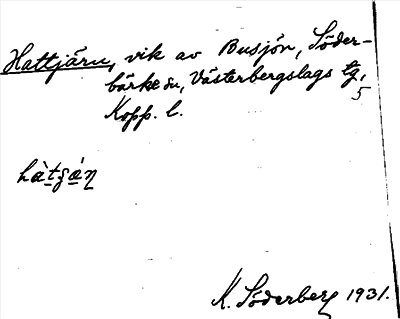 Hattjärn, vik av Busjön, Söder-
bärke sn, Västerbergslags tg,
5
Kopp. l.
K. Söderberg 1931.